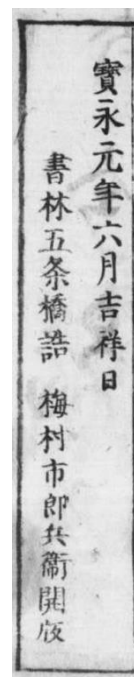 寳永元年六月吉祥日
書林五条橋詰 梅村市郎兵衛開版